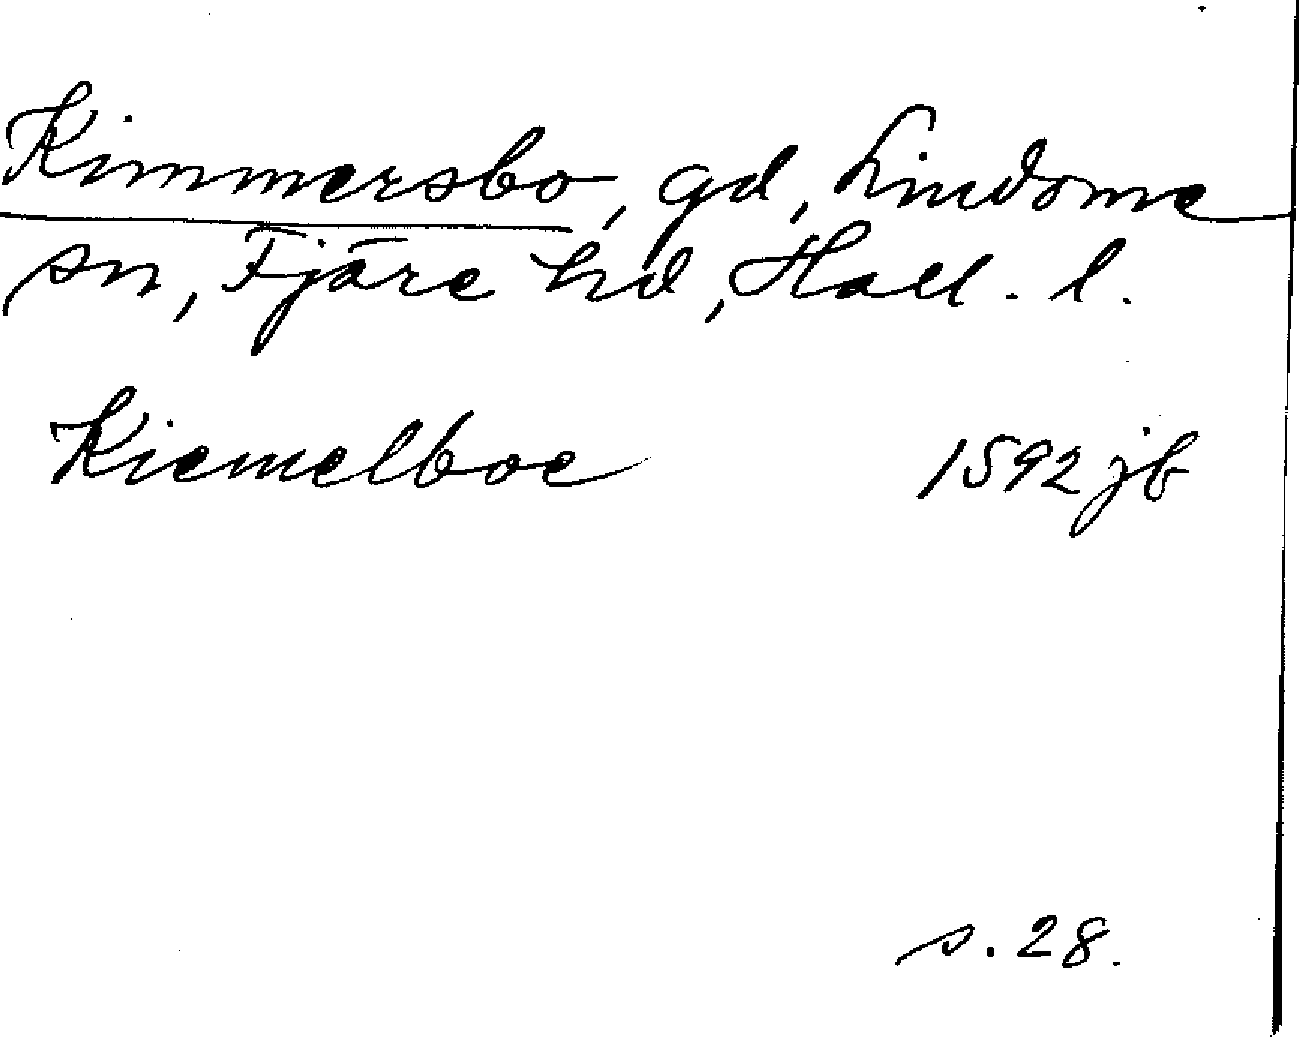 Kimmersbo, gd, Lindome
sn, Fjäre hd, Hall. l.
Kiemelboe 1592 jb
s. 28.